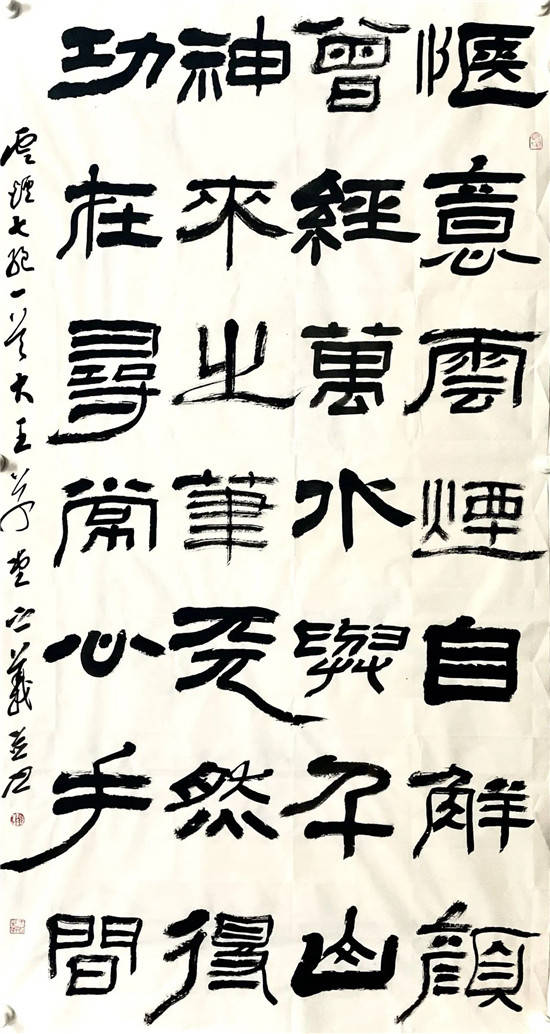 愜意雲煙自解顔
曾經萬水與千山
神來之筆天然得
功在尋常心手間
雲煙七絕一首大王草堂正義